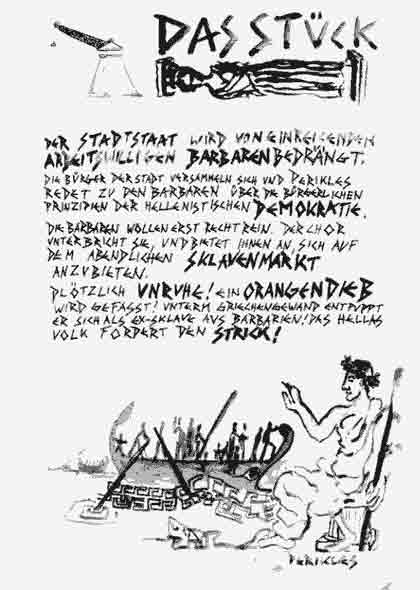 DAS STÜCK
DER STADTSTAAT WIRD VON EINREISENDEN
ARBEITSWILLIGEN BARBAREN BEDRÄNGT.
DIE BÜRGER DER STADT VERSAMMELN SICH UND PERIKLES
REDET ZU DEN BARBAREN ÜBER DIE BÜRGERLICHEN
PRINZIPIEN DER HELLENISTISCHEN DEMOKRATIE.
DIE BARBAREN WOLLEN ERST RECHT REIN. DER CHOR
UNTERBRICHT SIE, UND BIETET IHNEN AN, SICH AUF
DEM ABENDLICHEN SKLAVENMARKT
ANZUBIETEN.
PLÖTZLICH UNRUHE! EIN ORANGENDIEB
WIRD GEFASST! UNTERM GRIECHENGEWAND ENTPUPPT
ER SICH ALS EX-SKLAVE AUS BARBARIEN! DAS HELLAS
VOLK FORDERT DEN STRICK!
PERIKLES